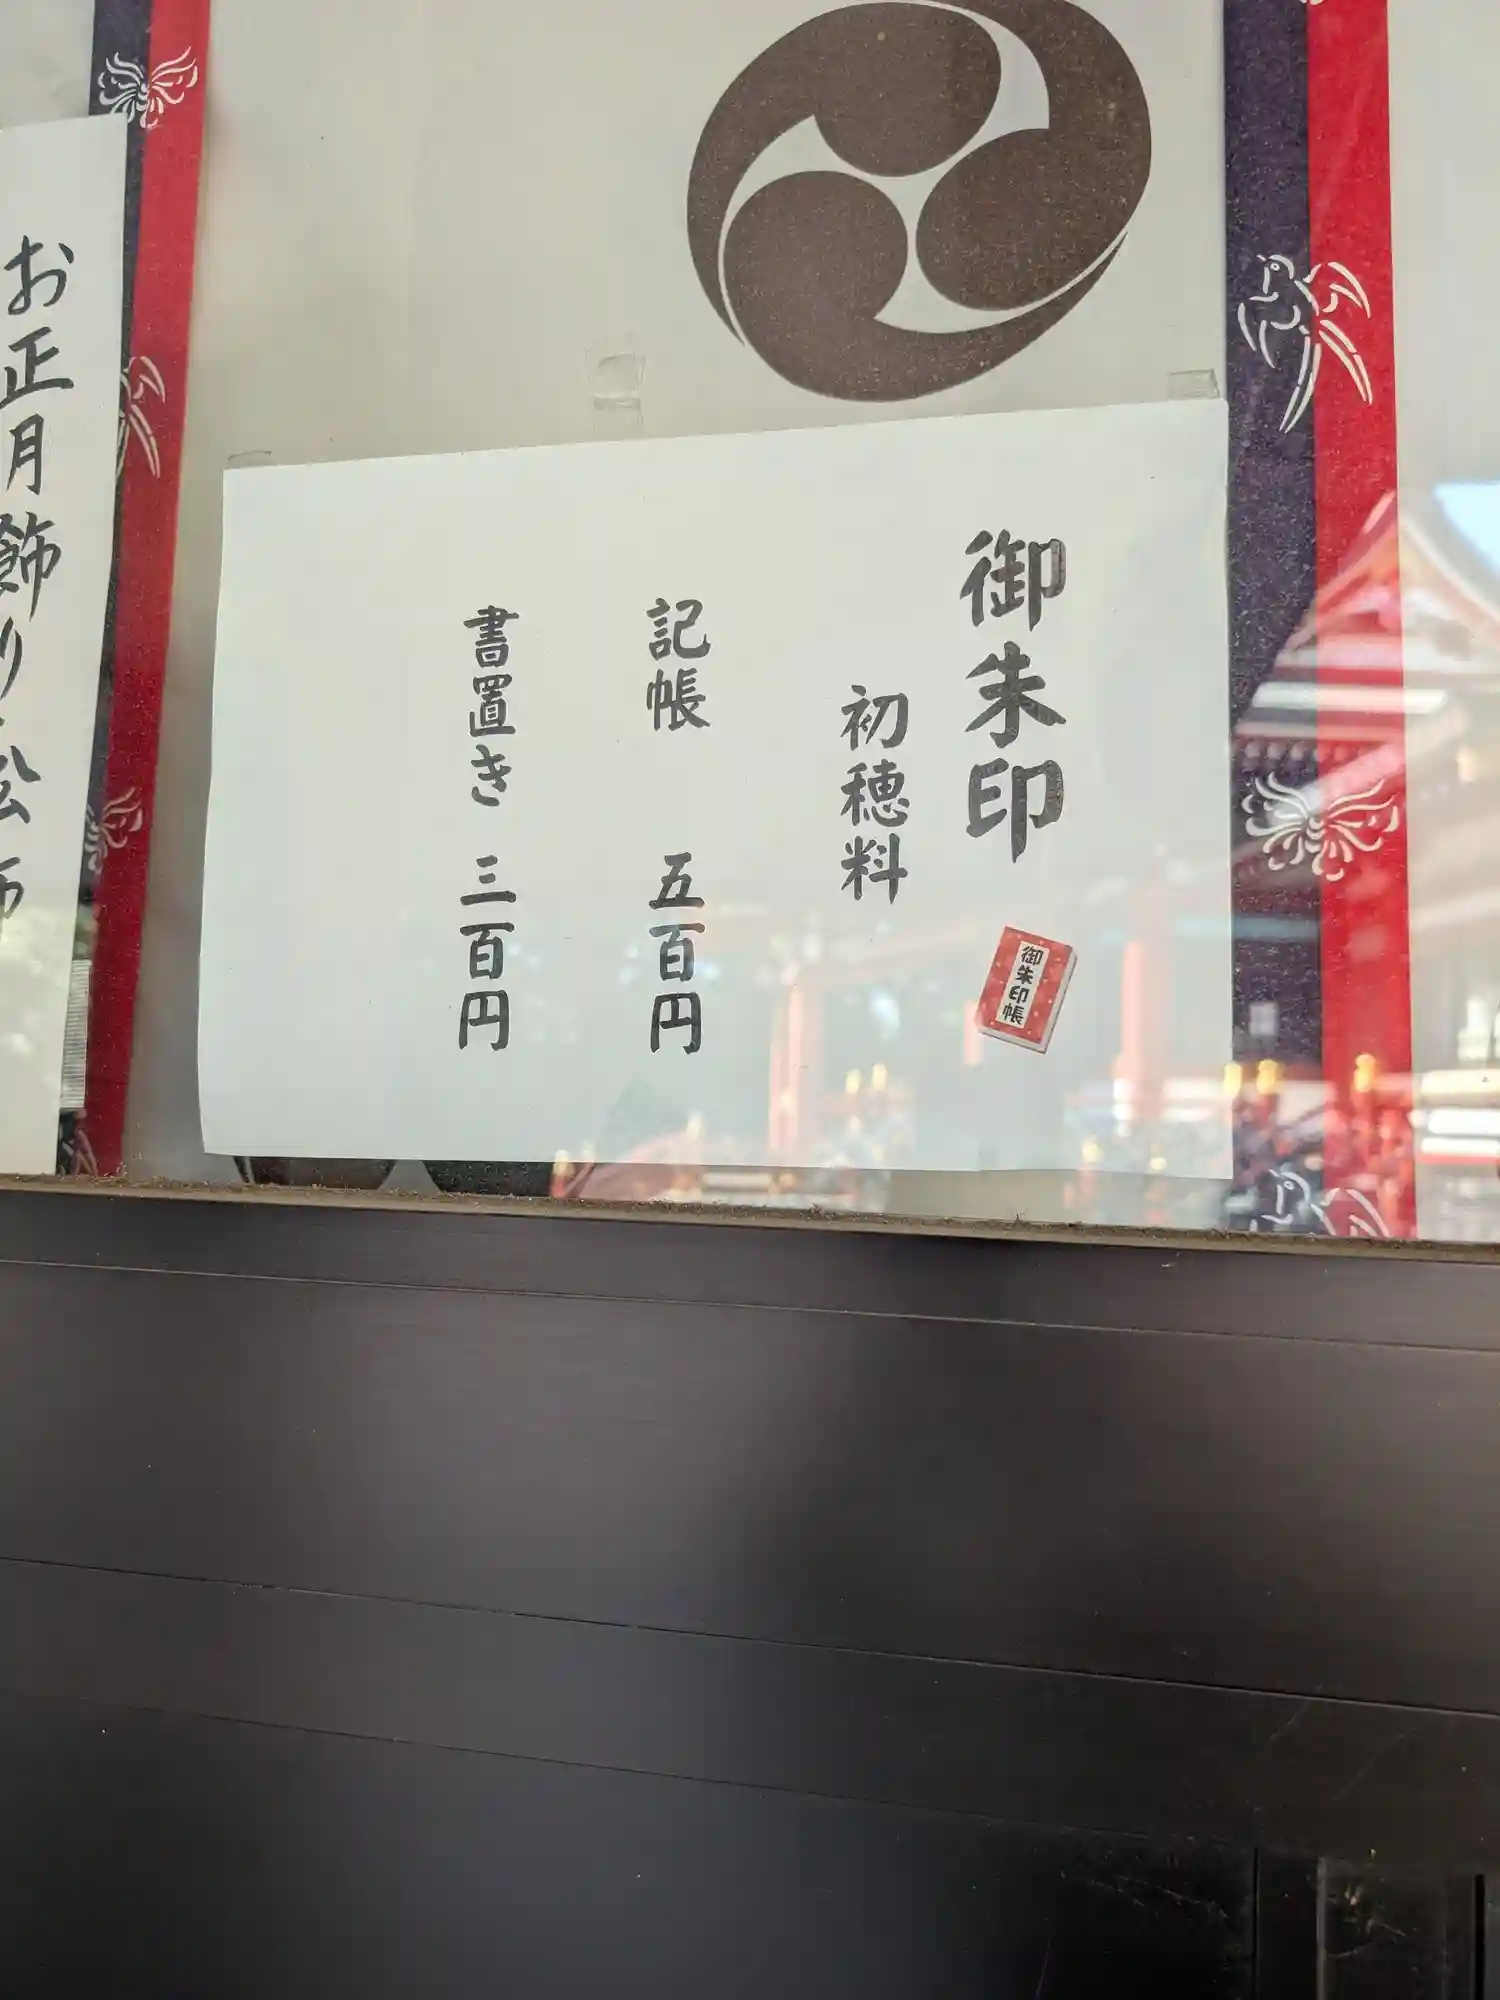 御朱印
御朱印帳
初穂料
記帳 五百円
書置き 三百円
お正月飾り